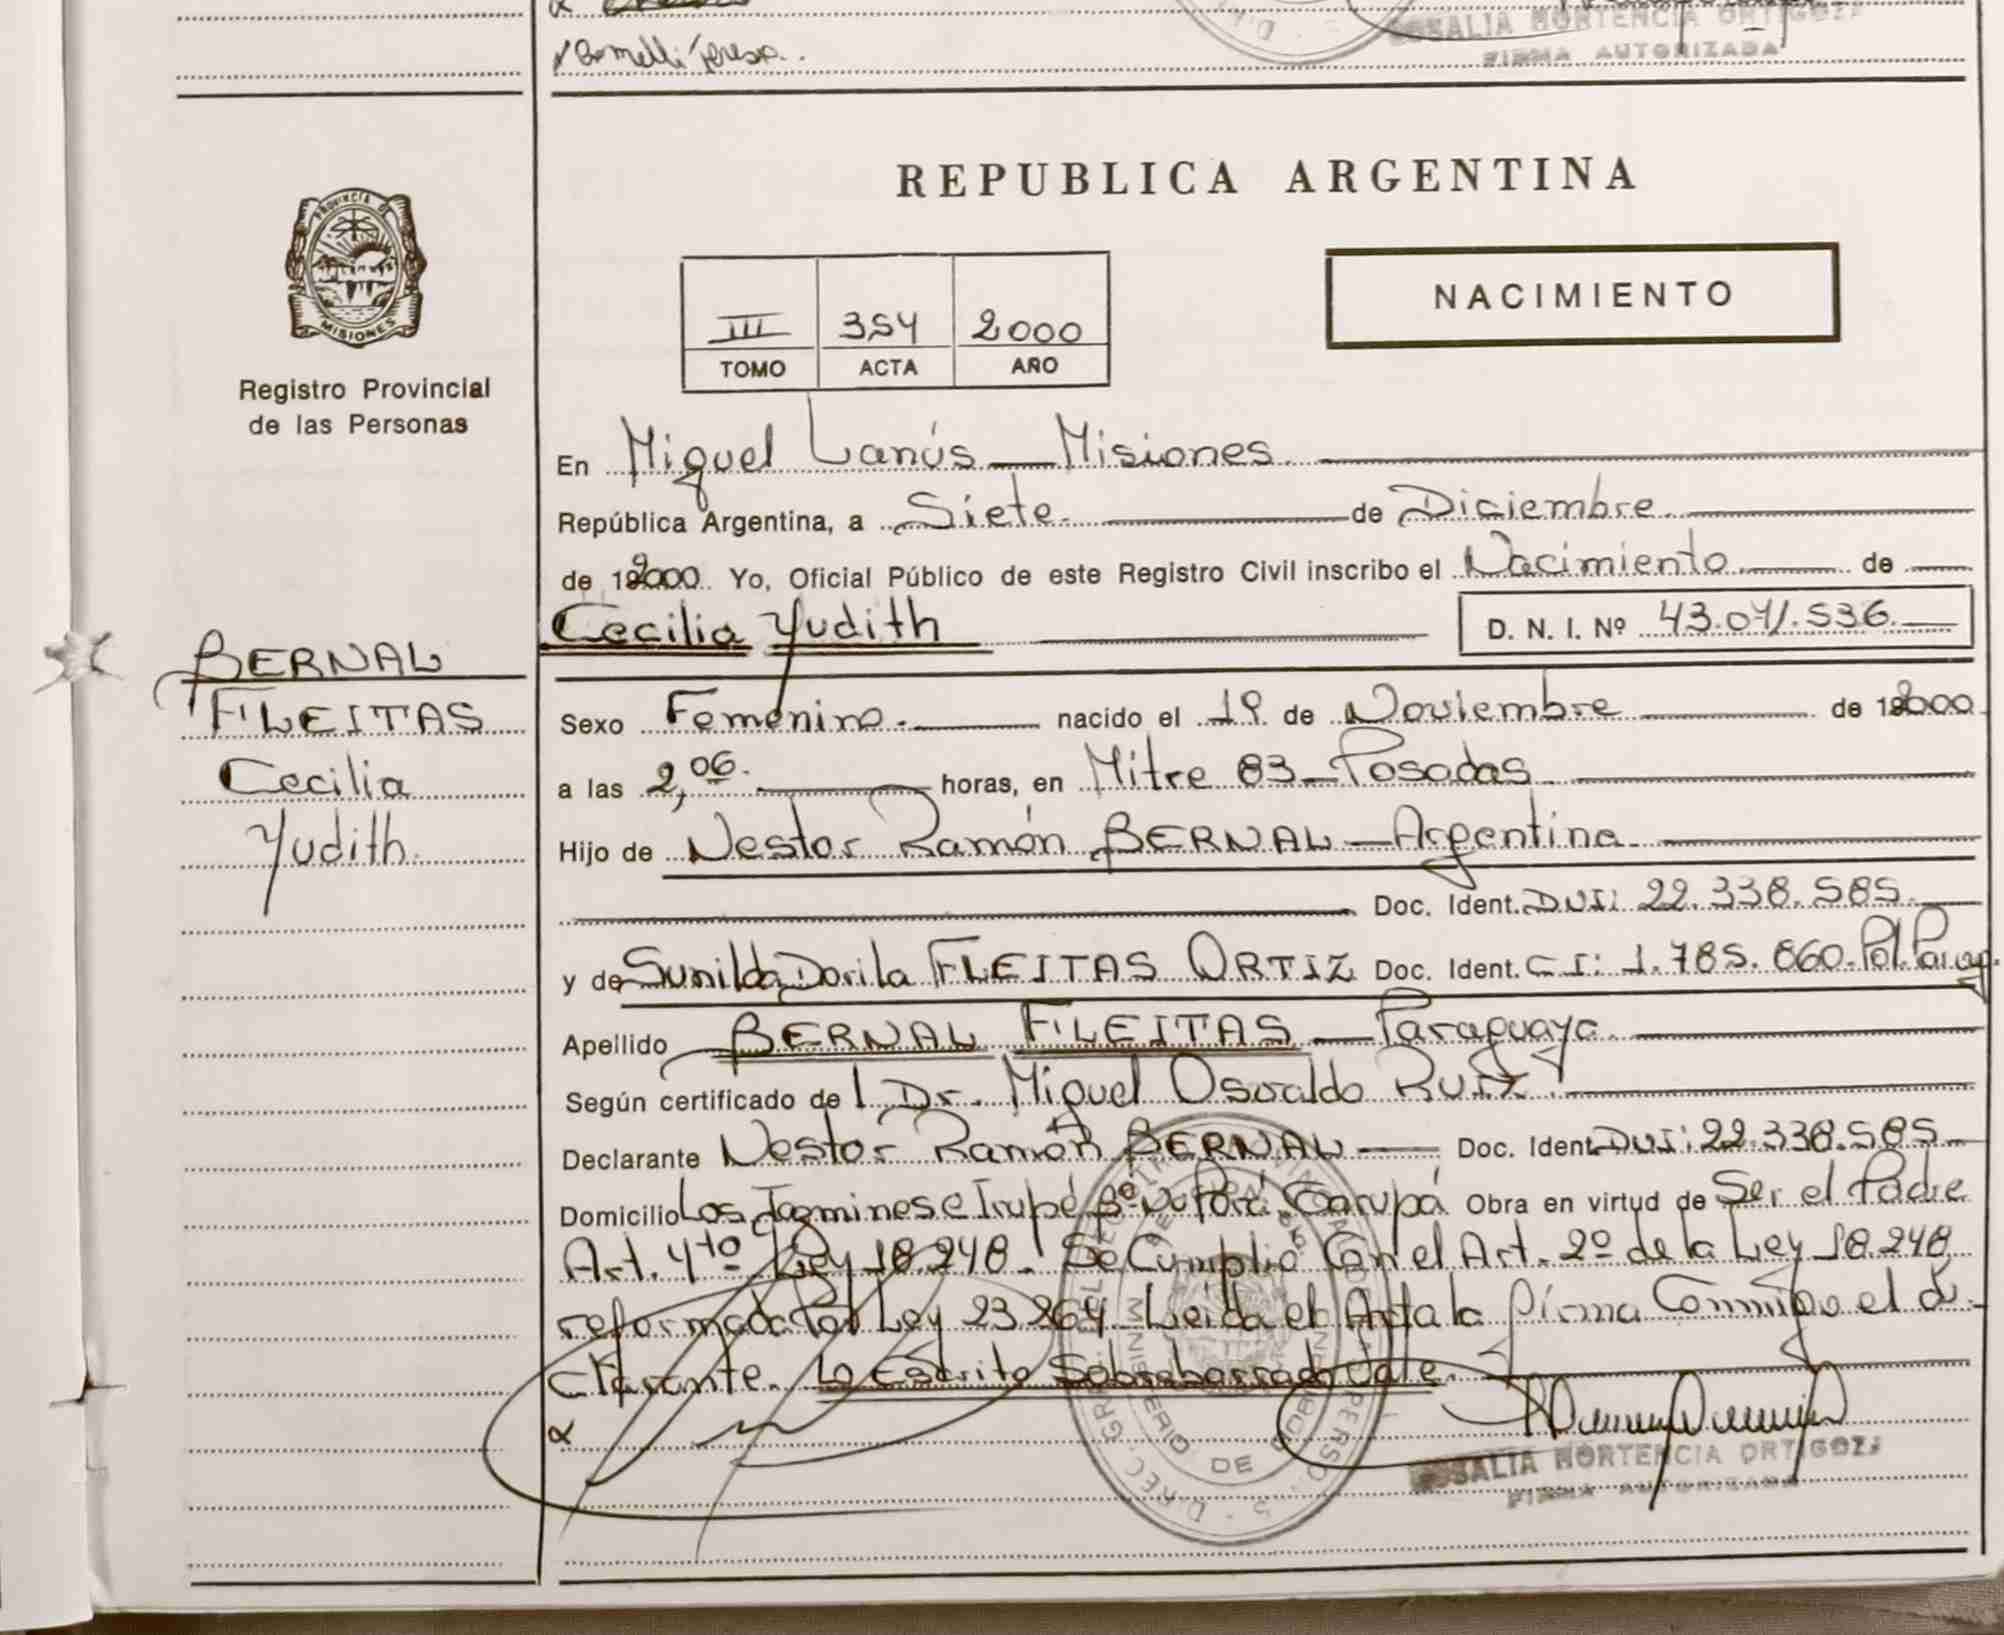 Bomelli Teresa.
ROSALIA HORTENCIA ORTIGOZA
FIRMA AUTORIZADA
REPUBLICA ARGENTINA
PROVINCIA DE
MISIONES
Registro Provincial
de las Personas
III 354 2000
TOMO ACTA AÑO
NACIMIENTO
En Miguel Lanús — Misiones.
República Argentina, a Siete. de Diciembre.
de 2000. Yo, Oficial Público de este Registro Civil inscribo el Nacimiento de
Cecilia Yudith
D. N. I. Nº 43.041.536.
BERNAL
FLEITAS
Cecilia
Yudith.
Sexo Femenino. nacido el 19 de Noviembre de 2000
a las 2,06. horas, en Mitre 83 — Posadas
Hijo de Nestor Ramón BERNAL — Argentina.
Doc. Ident. DNI: 22.338.585.
y de Sunilda Dorila FLEITAS ORTIZ Doc. Ident. CI: 1.785.860. Pol. Parag.
Apellido BERNAL FLEITAS — Paraguaya.
Según certificado del Dr. Miguel Osvaldo RUIZ.
Declarante Nestor Ramón BERNAL — Doc. Ident. DNI: 22.338.585
Domicilio Los Jasmines e Irupé Bº Ñu Porá. Garupá Obra en virtud de Ser el Padre
Art. 4to Ley 18.248. Se Cumplio Con el Art. 2º de la Ley 18.248
reformada Por Ley 23264. Leida el Acta la firma Conmigo el de-
clarante. Lo Escrito Sobreborrado Vale.
ROSALIA HORTENCIA ORTIGOZA
FIRMA AUTORIZADA